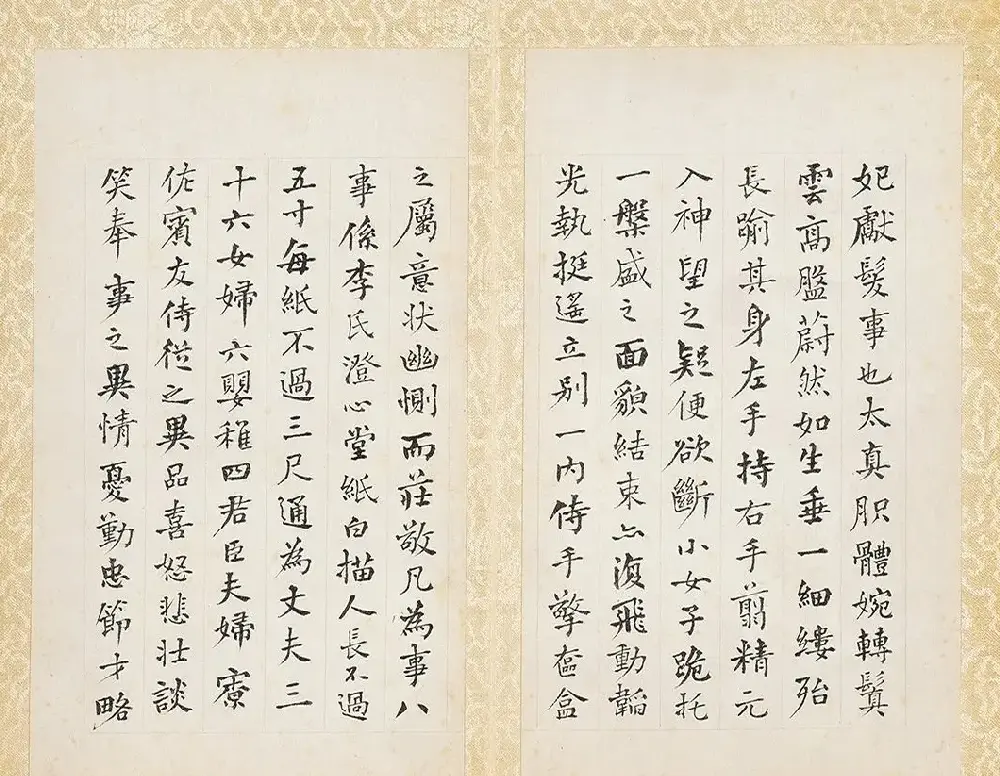 妃獻髮事也太真肌體婉轉鬢
雲高盤蔚然如生垂一細縷殆
長踰其身左手持右手翦精元
入神望之疑便欲斷小女子跪托
一槃盛之面貌結束亦復飛動韜
光執挺遥立别一内侍手擎奩盒
之屬意状幽惻而莊敬凡為事八
事係李氏澄心堂紙白描人長不過
五寸每紙不過三尺通為丈夫三
十六女婦六嬰稚四君臣夫婦寮
佐賓友侍從之異品喜怒悲壯談
笑奉事之異情憂勤忠節才略